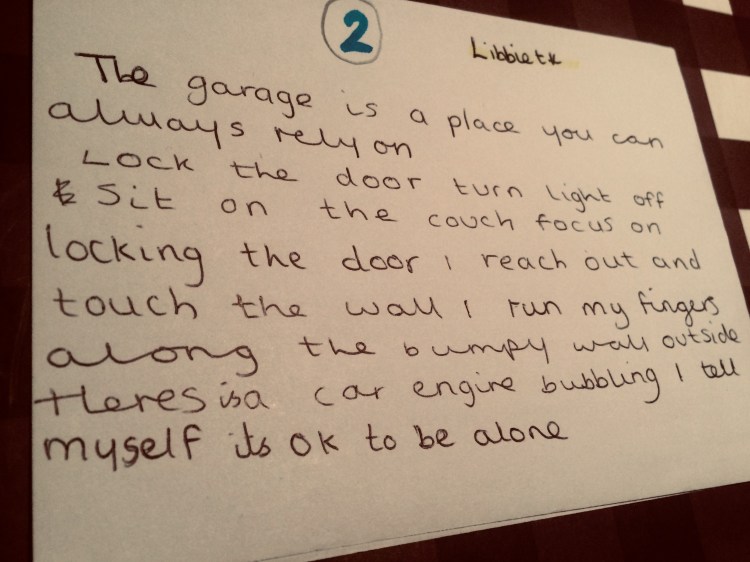 2
Libbietk
The garage is a place you can
always rely on
Lock the door turn light off
& Sit on the couch focus on
locking the door I reach out and
touch the wall I run my fingers
along the bumpy wall outside
Heres isa car engire bubbling I tell
myself its ok to be alone